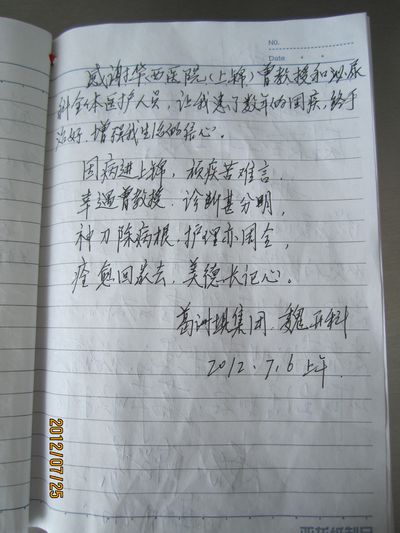 NO.
Date
感谢华西医院(上锦)曾教授和泌尿
科全体医护人员,让我患了数年的固疾,终于
治好,增强我生活的信心。
因病进上锦,顽疾苦难言,
幸遇曾教授,诊断甚分明,
神刀除病根,护理亦周全,
痊愈回家去,美德长记心。
葛洲坝集团 魏
2012.7.6 上午
2012/07/25